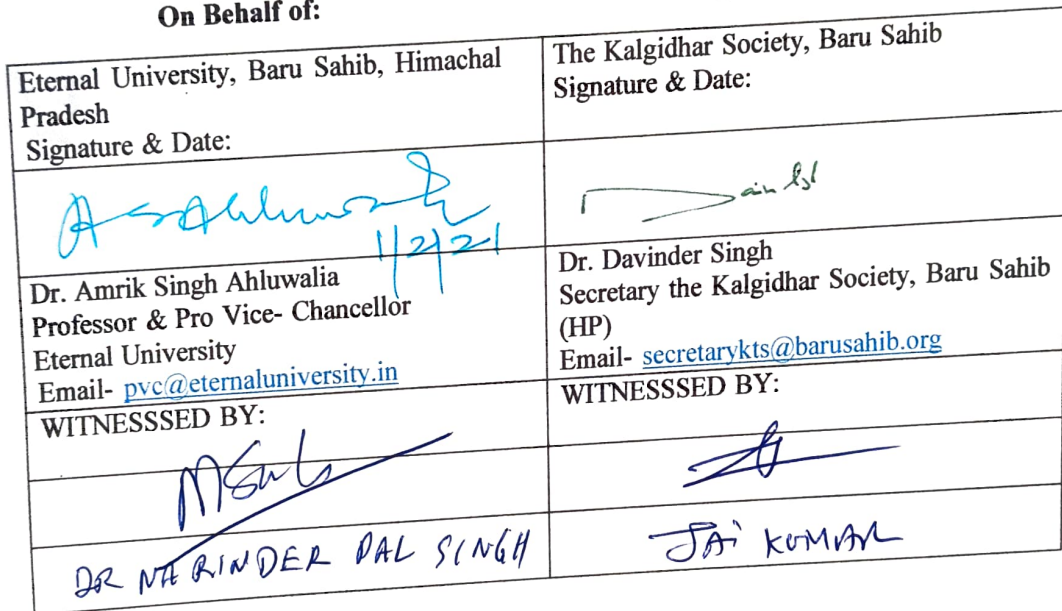 On Behalf of:
Eternal University, Baru Sahib, Himachal
Pradesh
Signature & Date:
The Kalgidhar Society, Baru Sahib
Signature & Date:
1/2/21
Dr. Amrik Singh Ahluwalia
Professor & Pro Vice- Chancellor
Eternal University
Email- pvc@eternaluniversity.in
Dr. Davinder Singh
Secretary the Kalgidhar Society, Baru Sahib
(HP)
Email- secretarykts@barusahib.org
WITNESSSED BY:
WITNESSSED BY:
DR NARINDER PAL SINGH
JAi KUMAR